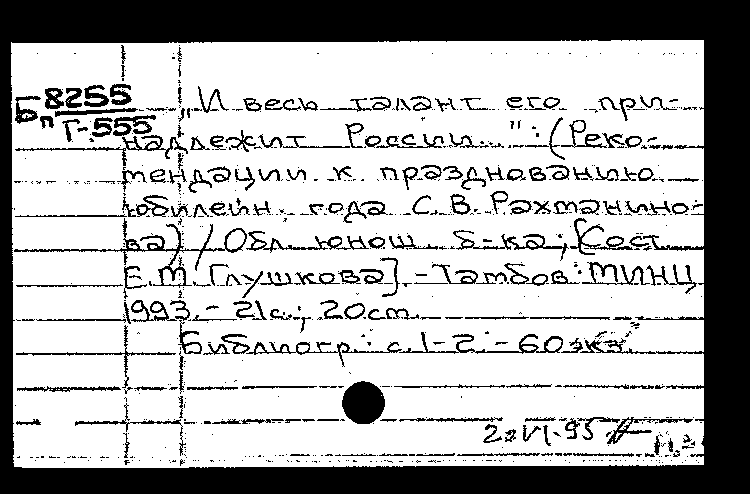 Бп 8255
Г-555
„И весь талант его при-
надлежит России..." : (Реко-
мендации к празднованию
юбилейн. года С. В. Рахманино-
ва) / Обл. юнош. б-ка; [Сост.
Е.М. Глушкова]. - Тамбов: МИНЦ,
1993. - 21с.; 20см.
Библиогр.: с.1-2. - 60экз.
VI-95